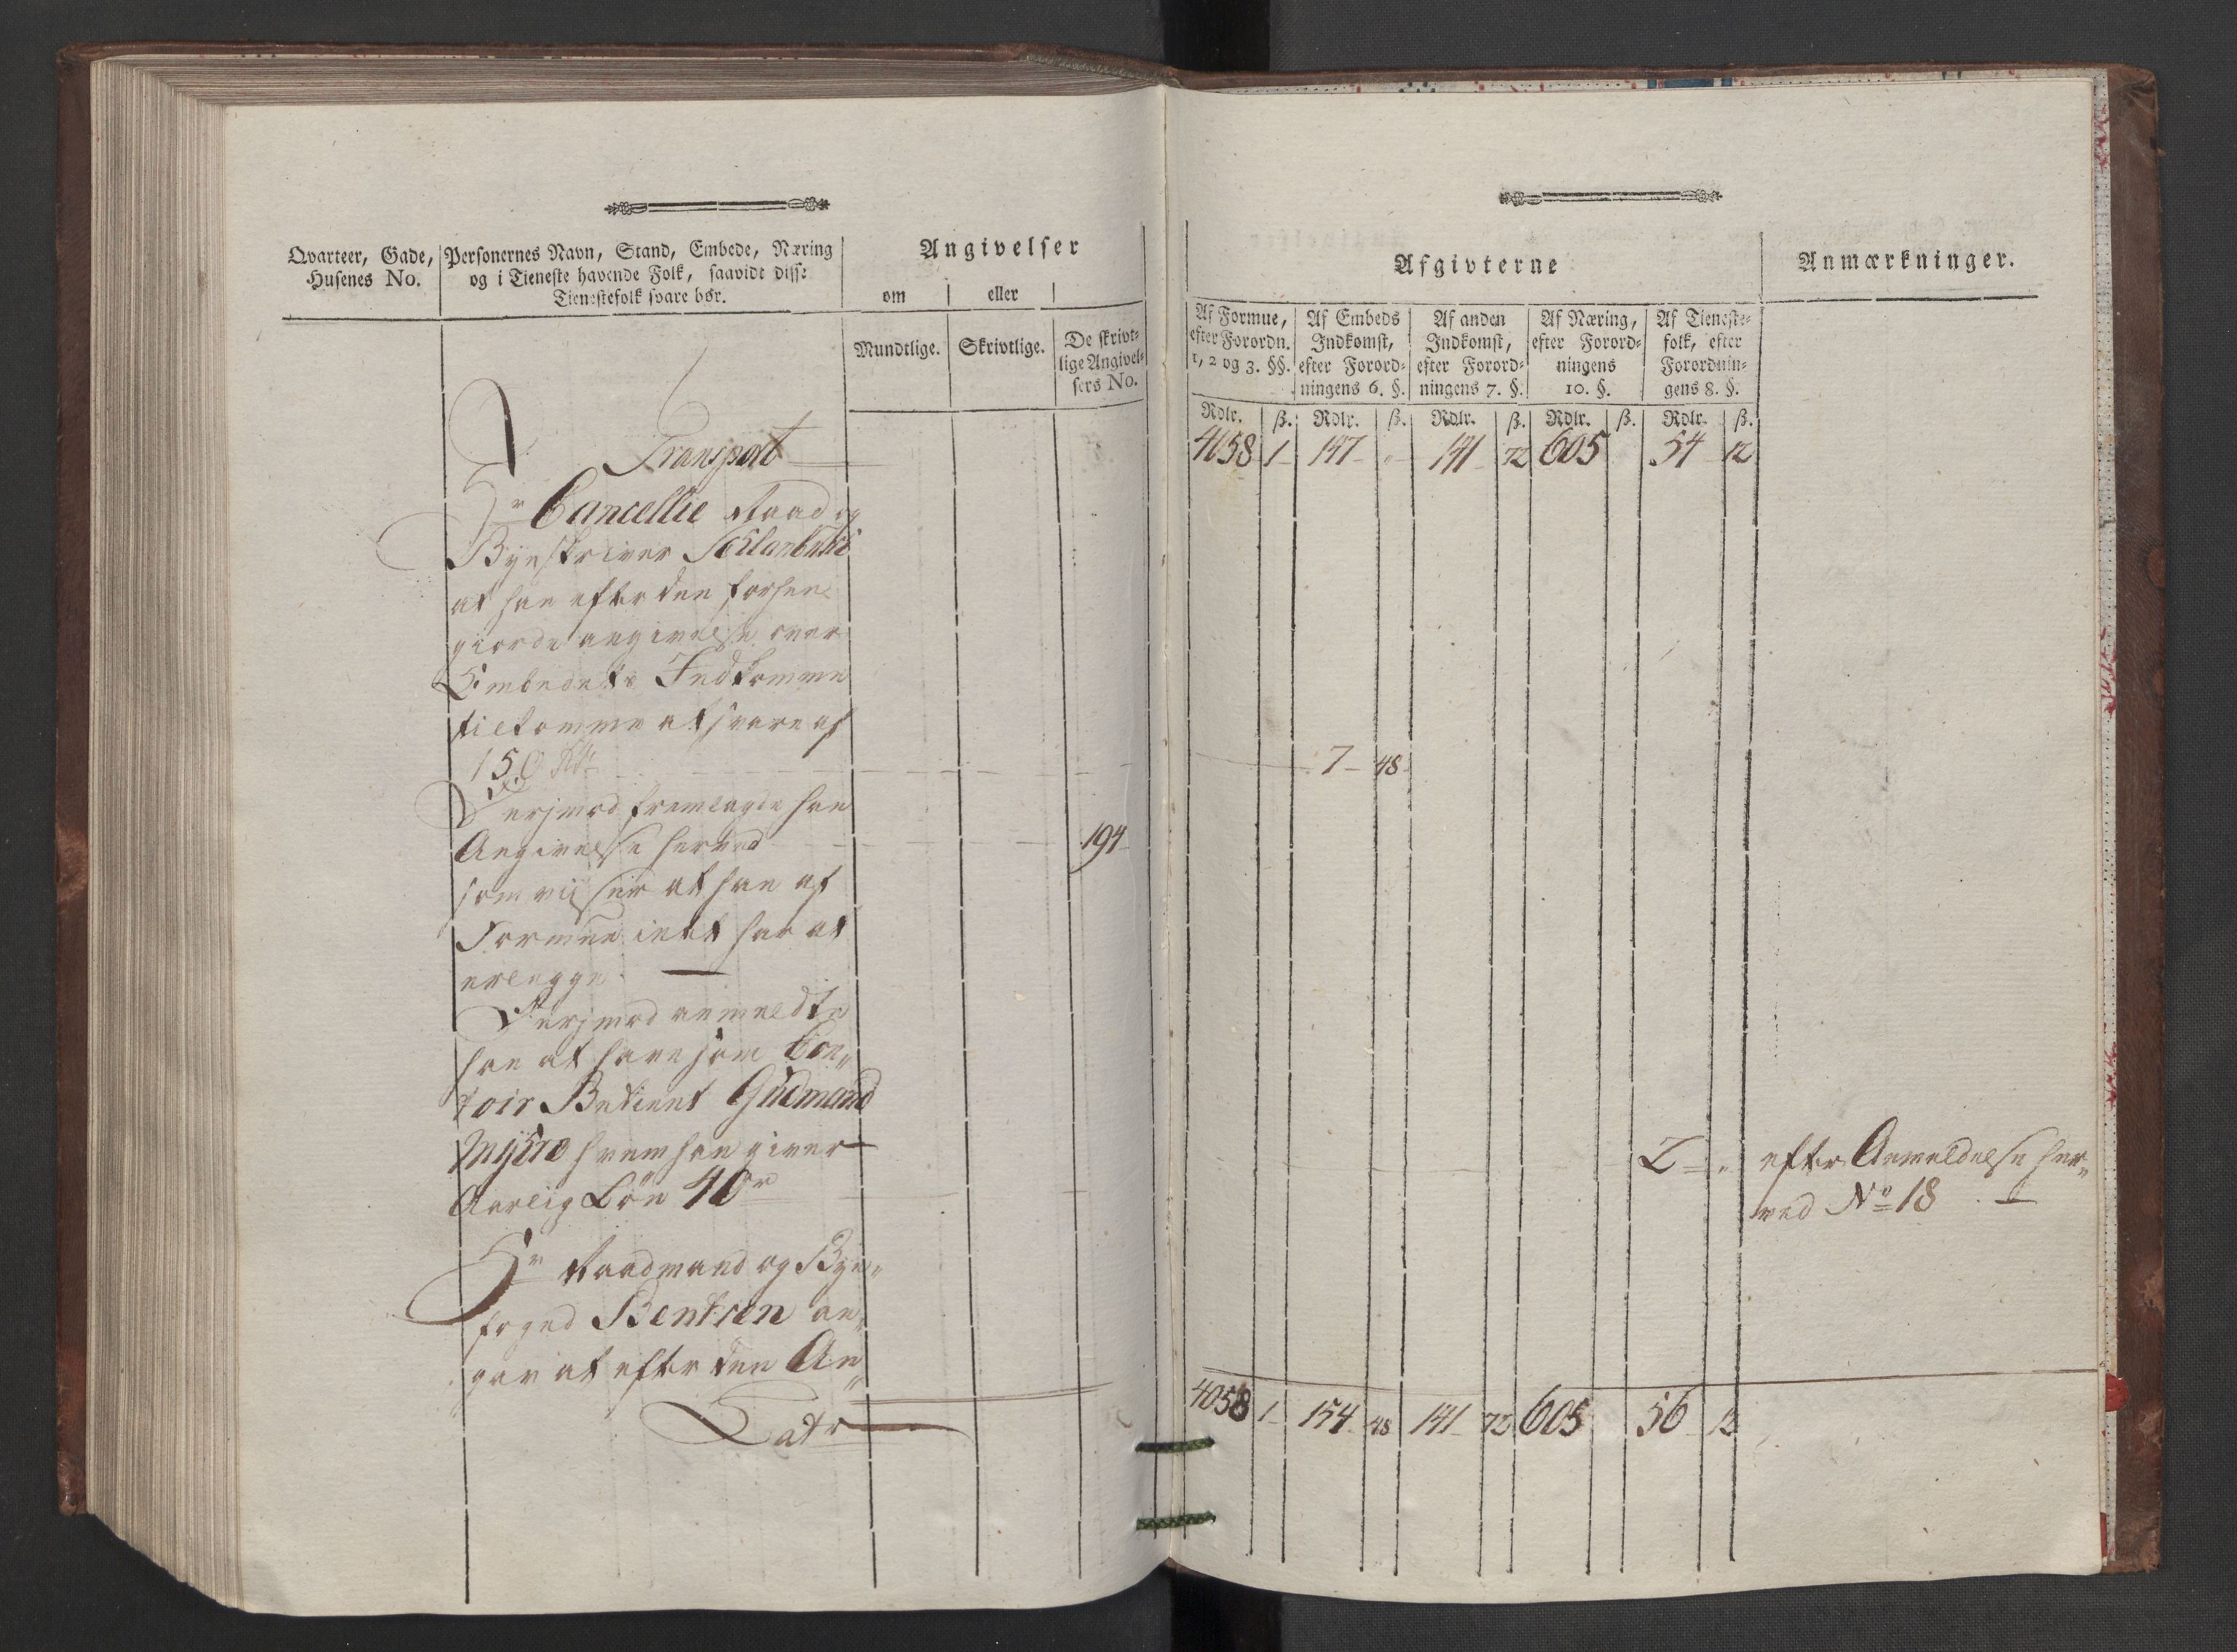 Qvarteer, Gade,
Husenes No.
Personernes Navn, Stand, Embede, Næring
og i Tieneste havende Folk, saavidt disse
Tienestefolk svare bør.
Angivelser
om
eller
Mundtlige.
Skrivtlige.
De skrivt-
lige Angivel-
sers No.
Transport
Hr Cancellie Raad og
Byeskriver
at han efter den forhen
giorde angivelse over
Embedets Indkomme
tilkomme at svare af
150 Rd
Dersmed fremlagde han
Angivelse herved
194
som viiser at han af
Formue intet har at
erlegge
Dersmed anmeldte
han at have som Con„
toir Betient Gudmand
Myhre hvem han giver
Aarlig Løn 40 r
Hr Raadmand og Bye„
foged Bentzen an„
gav at efter den An„
Latr
Afgivterne
Anmærkninger.
Af Formue,
efter Forordn.
1, 2 og 3. §§.
Af Embeds
Indkomst,
efter Forord-
ningens 6. §.
Af anden
Indkomst,
efter Forord-
ningens 7. §.
Af Næring,
efter Forord-
ningens
10. §.
Af Tieneste-
folk, efter
Forordnin-
gens 8. §.
Rdlr. ß. Rdlr. ß. Rdlr. ß. Rdlr. ß. Rdlr. ß.
4058 1 147 - 141 72 605 54 12
7 48
2 - „
efter Anmeldelse her„
ved No 18
4058 1 154 48 141 72 605 56 12